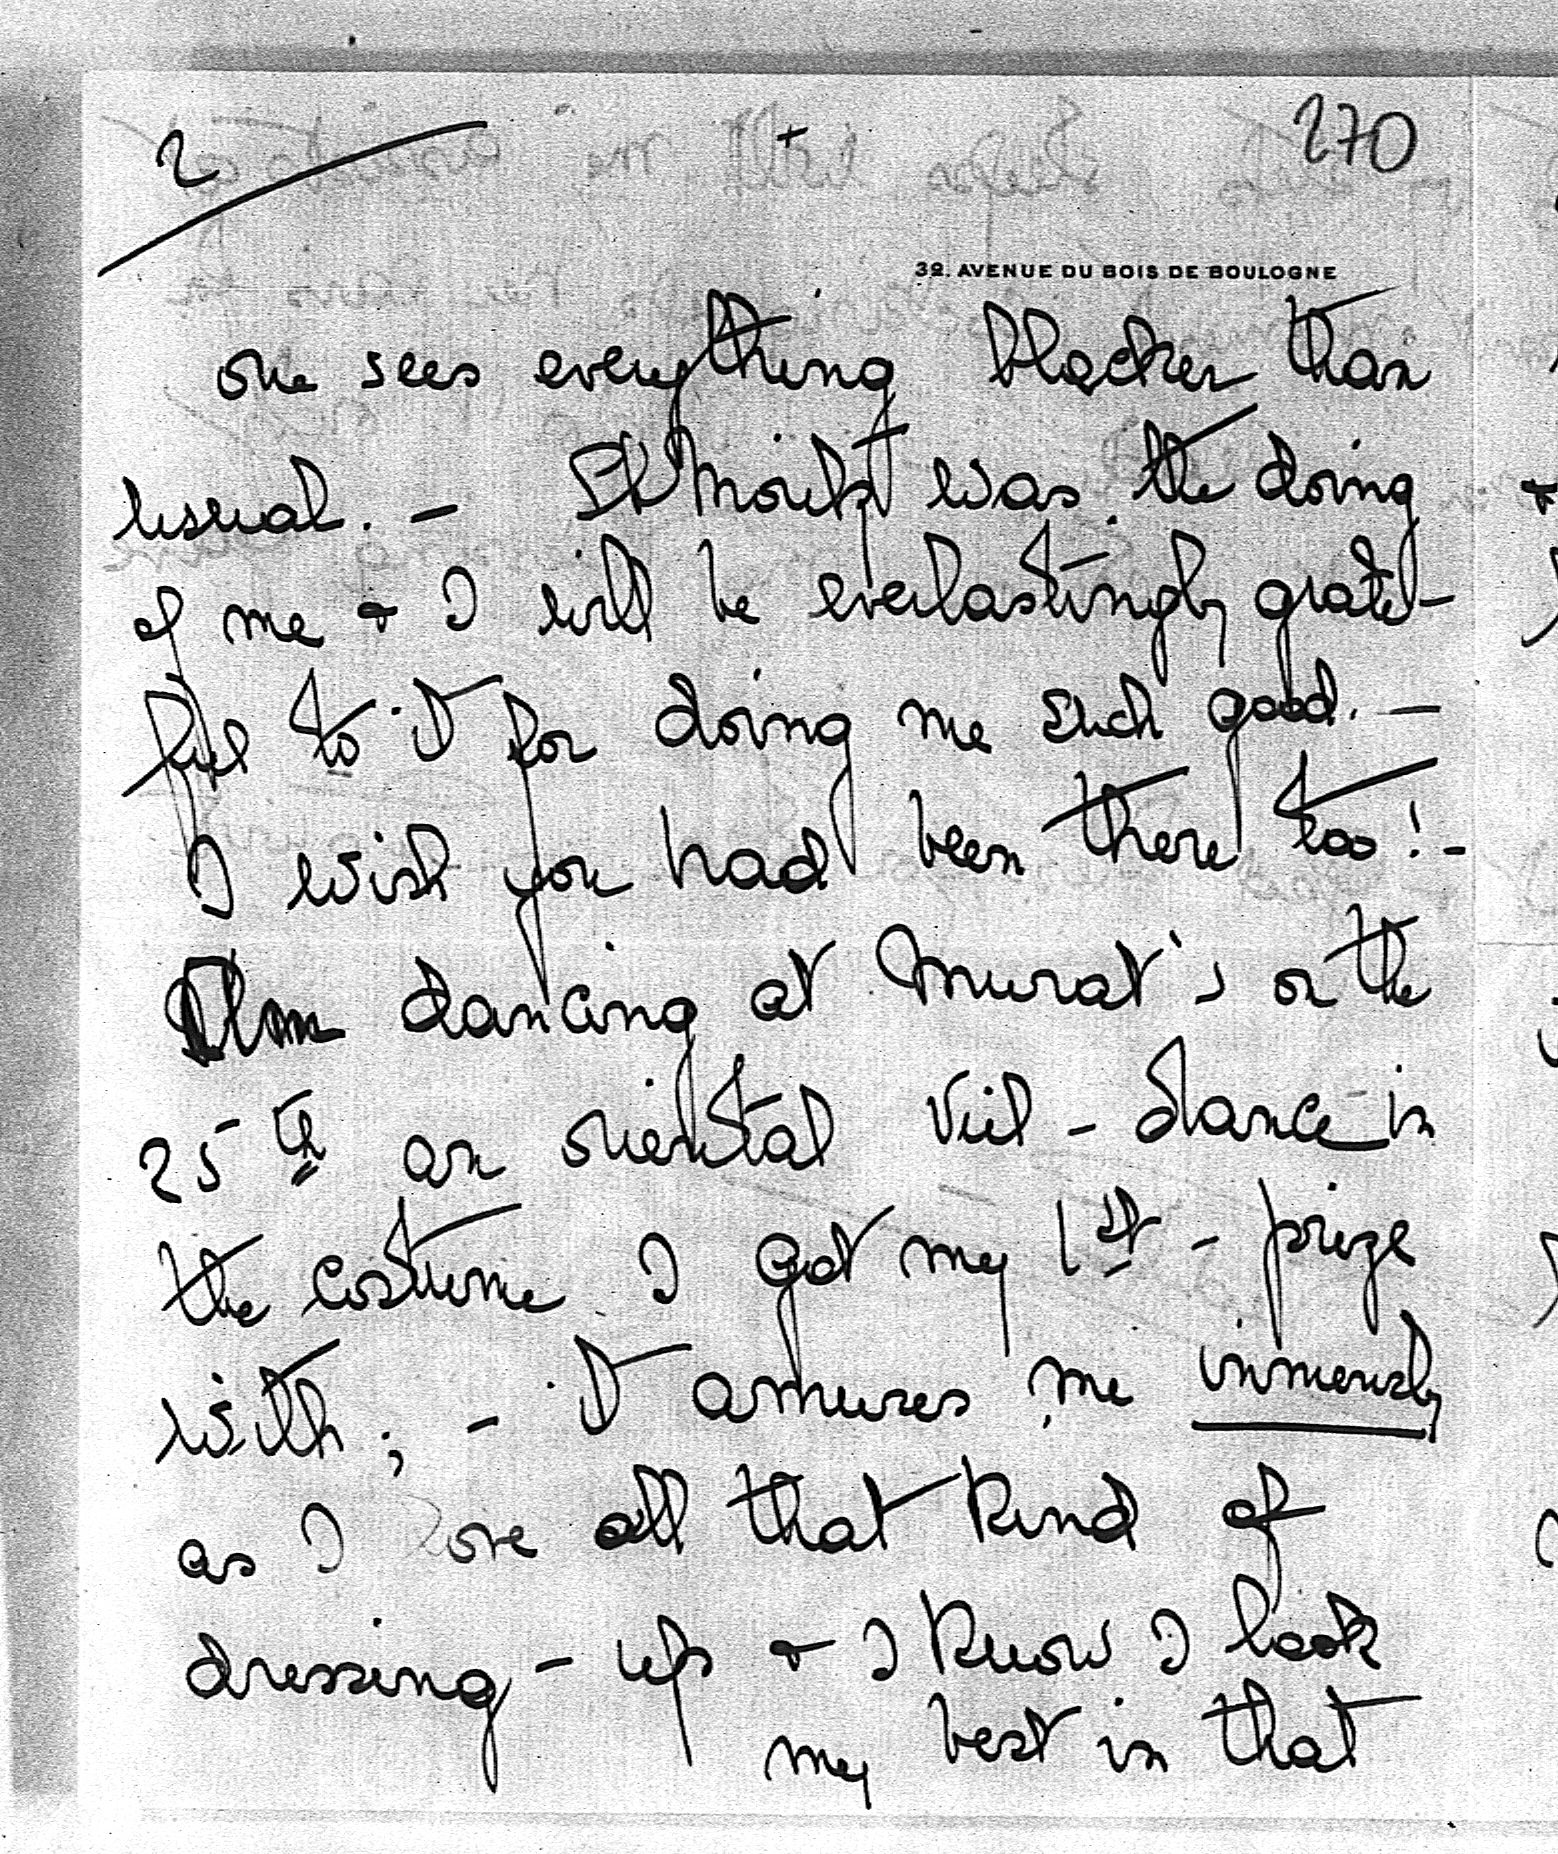 2 270
32. AVENUE DU BOIS DE BOULOGNE
one sees everything blacker than
usual. - St Moritz was the doing
of me & I will be everlastingly grate-
ful to it for doing me such good. -
I wish you had been there too! -
I'm dancing at Murat's on the
25th an oriental Veil - dance in
the costume I got my 1st - prize
with; - It amuses me immensly
as I love all that kind of
dressing - up & I know I look
my best in that